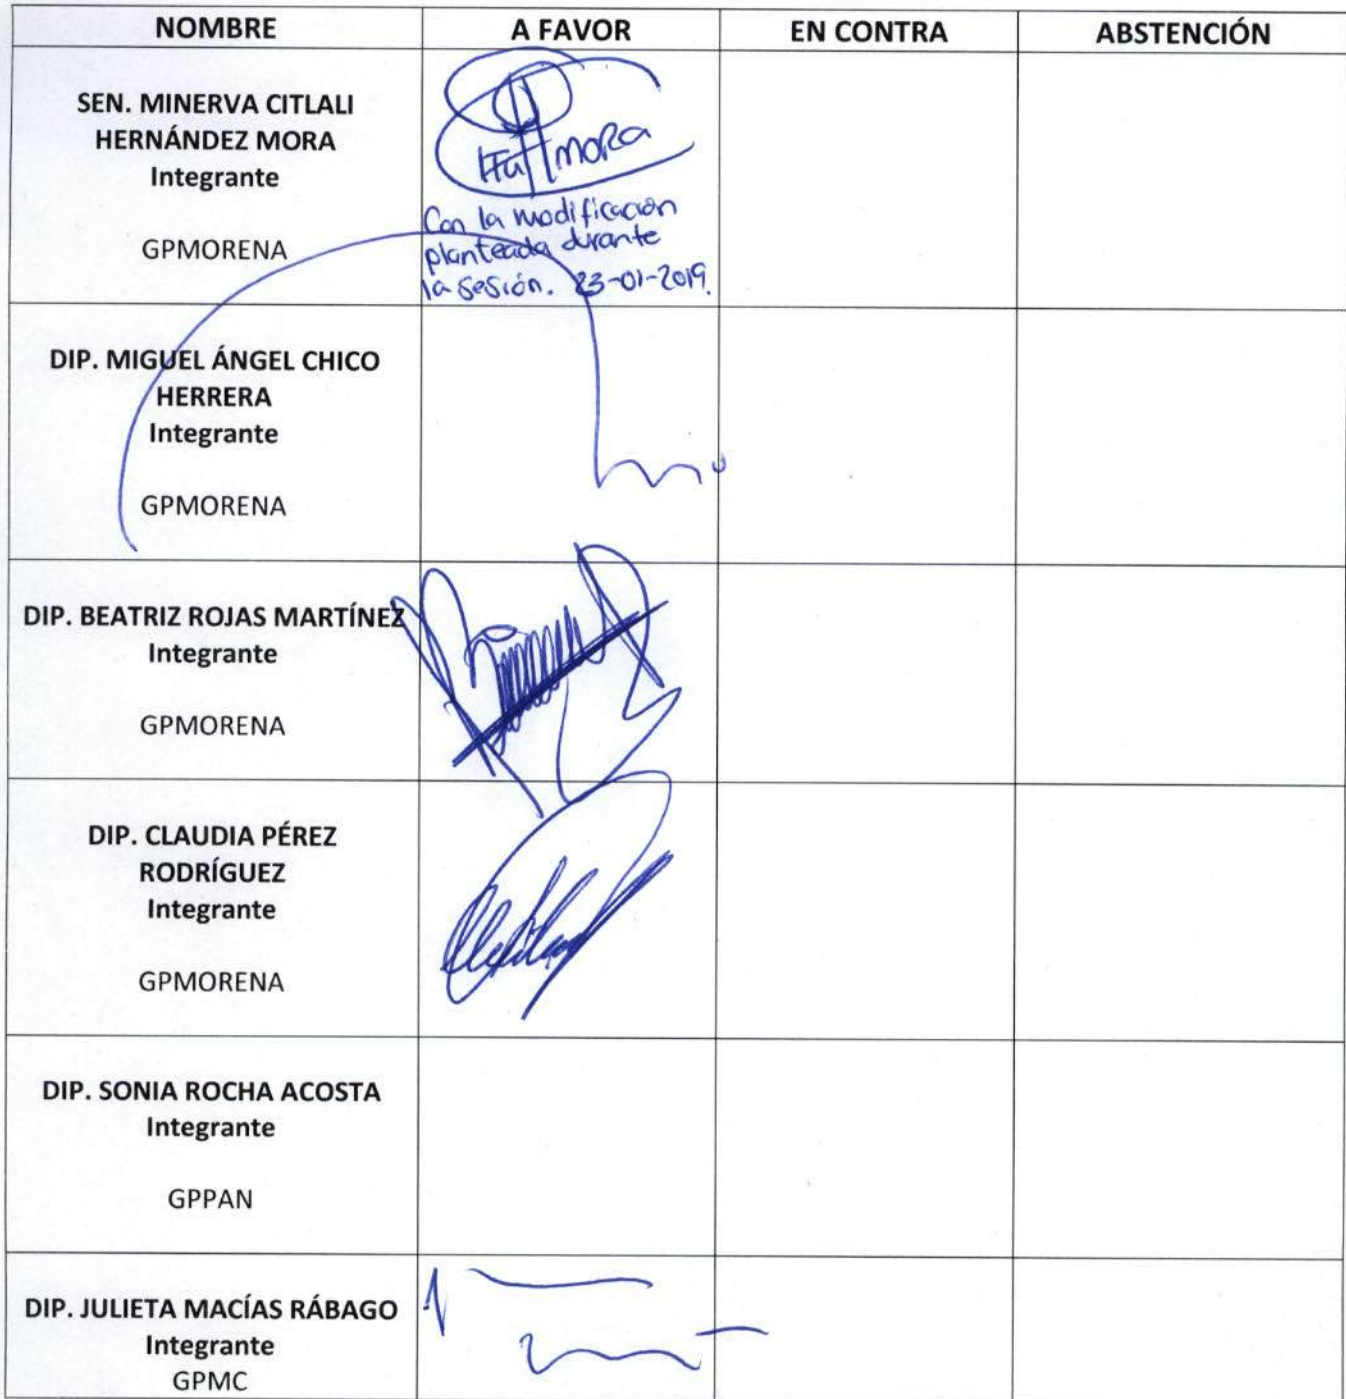 NOMBRE A FAVOR EN CONTRA ABSTENCIÓN
SEN. MINERVA CITLALI
HERNÁNDEZ MORA
Integrante
GPMORENA
mora
Con la modificación
planteada durante
la sesión. 23-01-2019.
DIP. MIGUEL ÁNGEL CHICO
HERRERA
Integrante
GPMORENA
DIP. BEATRIZ ROJAS MARTÍNEZ
Integrante
GPMORENA
DIP. CLAUDIA PÉREZ
RODRÍGUEZ
Integrante
GPMORENA
DIP. SONIA ROCHA ACOSTA
Integrante
GPPAN
DIP. JULIETA MACÍAS RÁBAGO
Integrante
GPMC